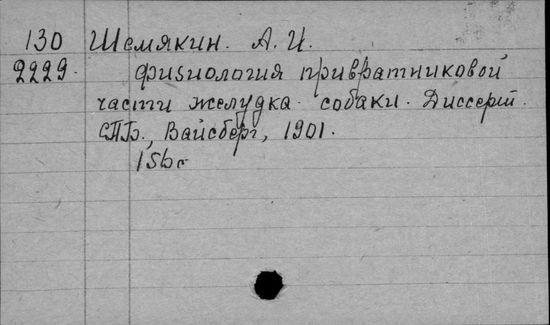 130 Шемякин. А. И.
2229. Физиология привратниковой
части желудка собаки. Диссерт.
СПБ., Вайсберг, 1901.
156 с